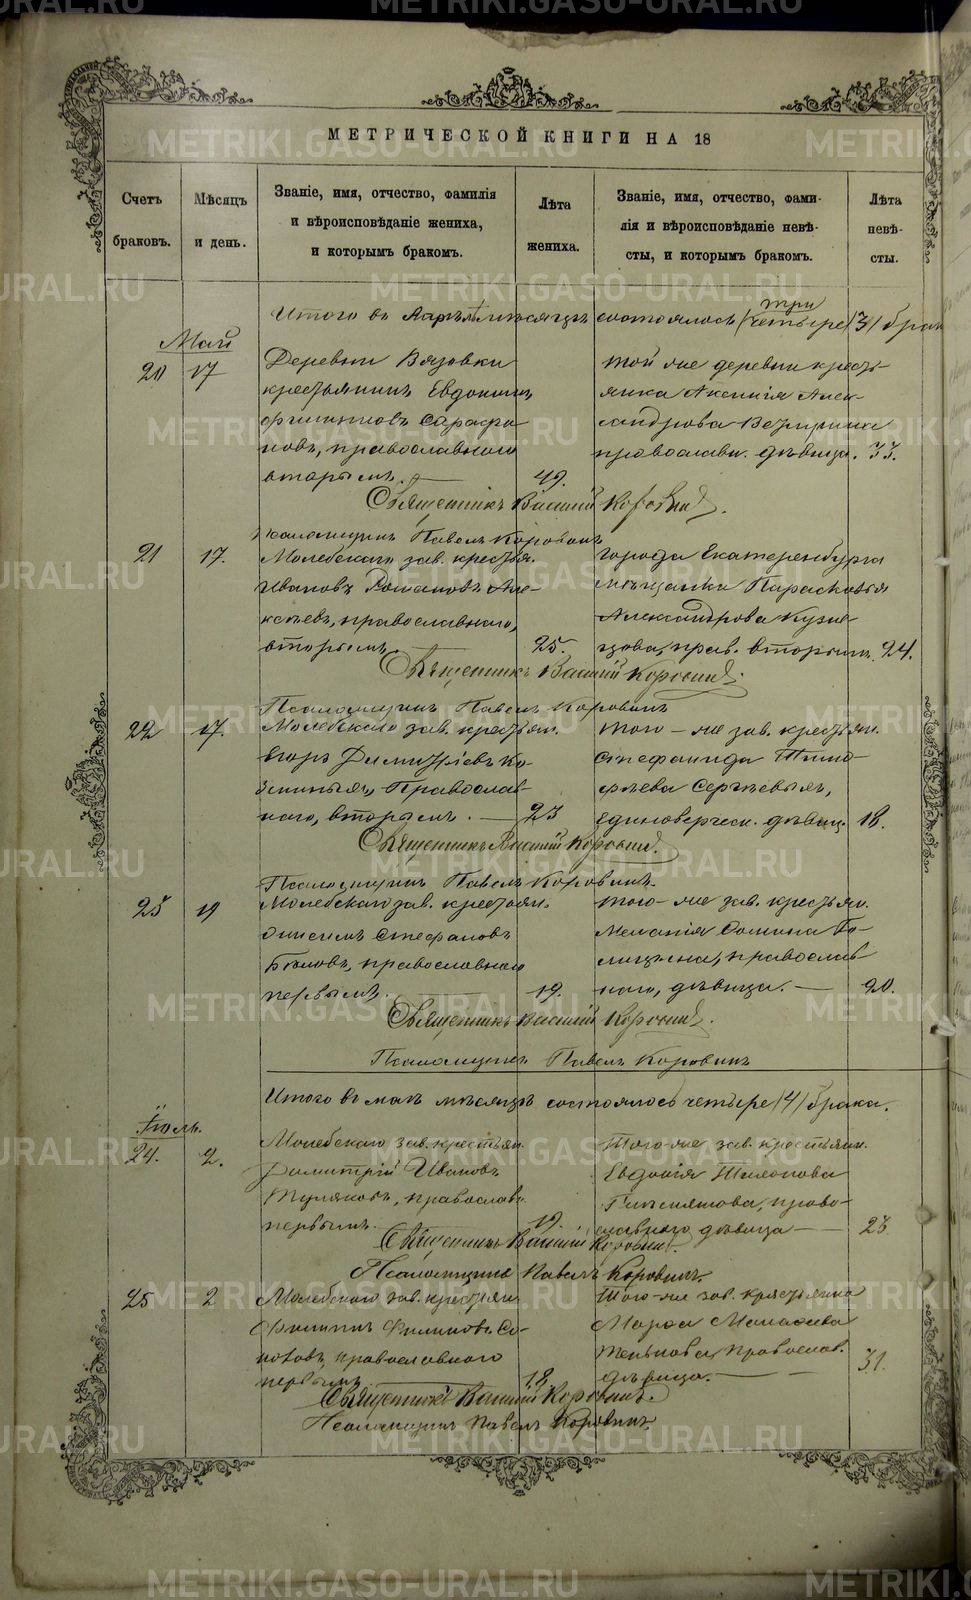 МЕТРИЧЕСКОЙ КНИГИ НА 18
Счетъ браковъ.
Мѣсяцъ и день.
Званіе, имя, отчество, фамилія
и вѣроисповѣданіе жениха,
и которымъ бракомъ.
Лѣта жениха.
Званіе, имя, отчество, фами-
лія и вѣроисповѣданіе невѣ-
сты, и которымъ бракомъ.
Лѣта невѣ-
сты.
три
Итого въ Апрѣлѣ мѣсяцѣ состоялось (четыре) 3) брак
Май
20 17
Деревни Вязовки
крестьянинъ Евдокимъ
Филипповъ Сарафа
новъ, православнаго
вторымъ. 49.
той же деревни кресть
янка Аксинія Алек-
сандрова
православн. дѣвица. 33.
Священникъ Василій Коровинъ.
Псаломщикъ Павелъ Коровинъ
21 17.
Молебскаго зав. крестья.
Ивановъ Романовъ Але-
ксѣевъ, православнаго,
вторымъ. 25.
города Екатеринбурга
мѣщанка Парасковья
Александрова Кузне-
цова, прав. вторымъ. 24.
Священникъ Василій Коровинъ.
Псаломщикъ Павелъ Коровинъ
22 17.
Молебскаго зав. крестьян.
Егоръ Димитріевъ Ко-
православ-
наго, вторымъ. 23
того-же зав. крестьян.
Стефанида Тимо-
фѣева Сергѣевыхъ,
Единоверческ. дѣвиц. 18.
Священникъ Василій Коровинъ.
Псаломщикъ Павелъ Коровинъ.
23 19
Молебскаго зав. крестьян.
Онисимъ Стефановъ
Бѣловъ, православнаго
первымъ. 19.
того-же зав. крестьян.
Меланія Фомина
православ-
наго, дѣвица. 20.
Священникъ Василій Коровинъ.
Псаломщикъ Павелъ Коровинъ
Итого въ маѣ мѣсяцѣ состоялось четыре (4) брака.
Іюль.
24. 2.
Молебскаго зав. крестьян.
Димитрій Ивановъ
Туляковъ, православн.
первымъ. 19.
Того-же зав. крестьян.
Евдокія
право-
славнаго дѣвица 23
Священникъ Василій Коровинъ.
Псаломщикъ Павелъ Коровинъ.
25 2
Молебскаго зав. крестьян
Филиппъ Филиповъ Со-
православнаго
первымъ. 18
Того-же зав. крестьянка
Марѳа
православ.
дѣвица. 31.
Священникъ Василій Коровинъ.
Псаломщикъ Павелъ Коровинъ.
METRIKI.GASO-URAL.RU